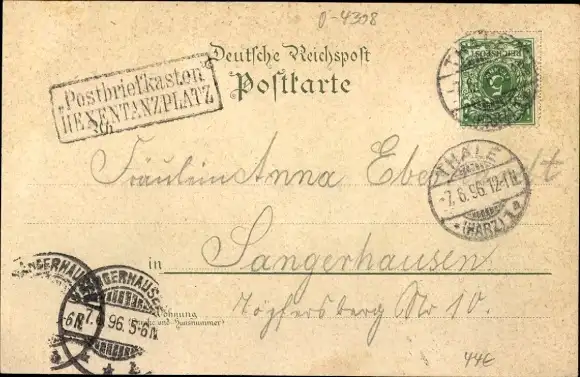 0-4308
Deutsche Reichspost
Postkarte
"Postbriefkasten
HEXENTANZPLATZ
THALE
7.6.96.12-1N.
*(HARZ)1a
Fräulein Anna
in Sangerhausen
SANGERHAUSEN
7.6.96.5-6N
Wohnung
(Straße und Hausnummer)
Töpfersberg Nr 10.
44€